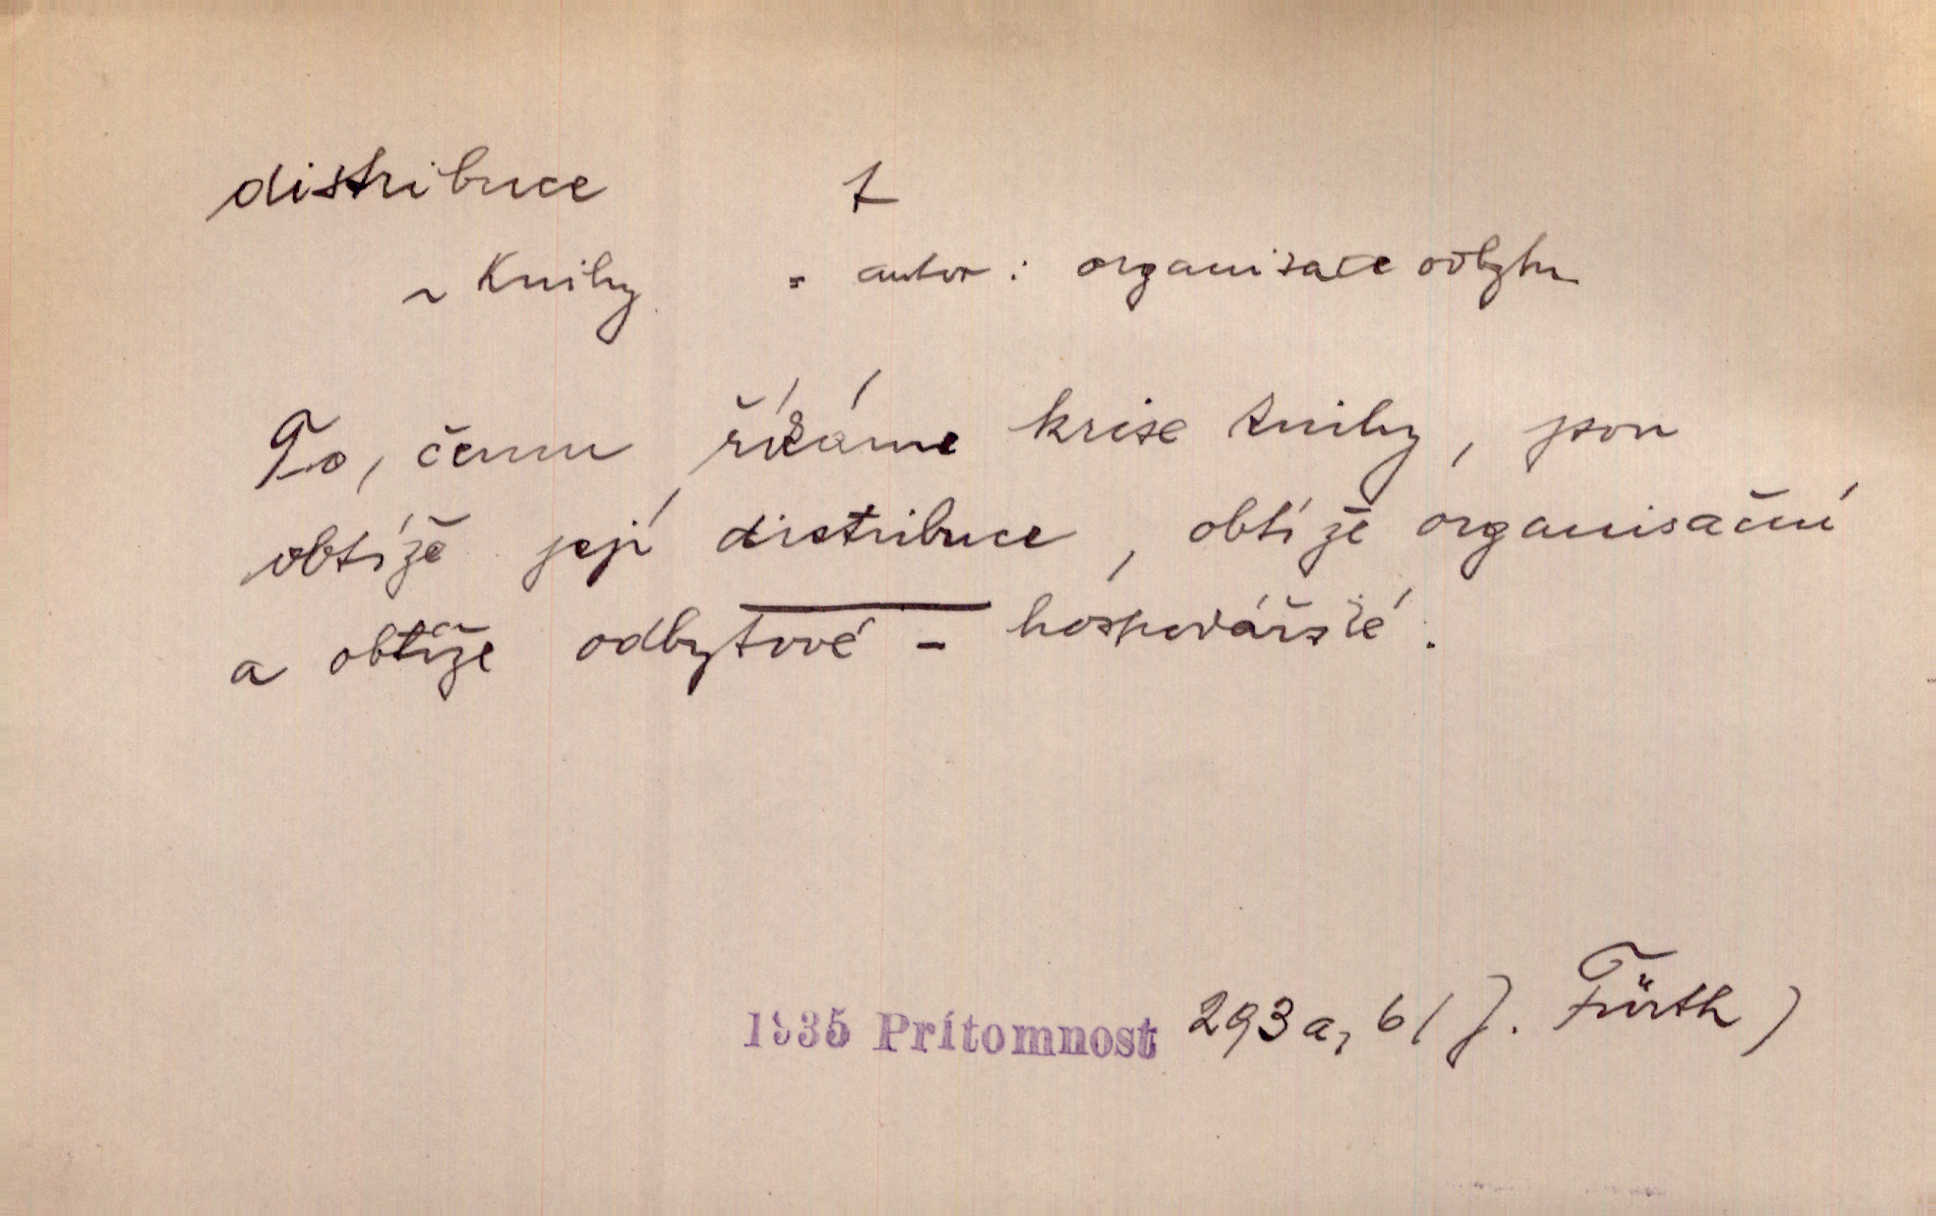 distribuce t
~ Knihy = autor : organisace odbytu
To, čemu říkáme krise knihy, jsou
obtíže její distribuce, obtíže organisační
a obtíže odbytové - hospodářské.
1935 Prítomnost 293a, 6/ J. Fürth)